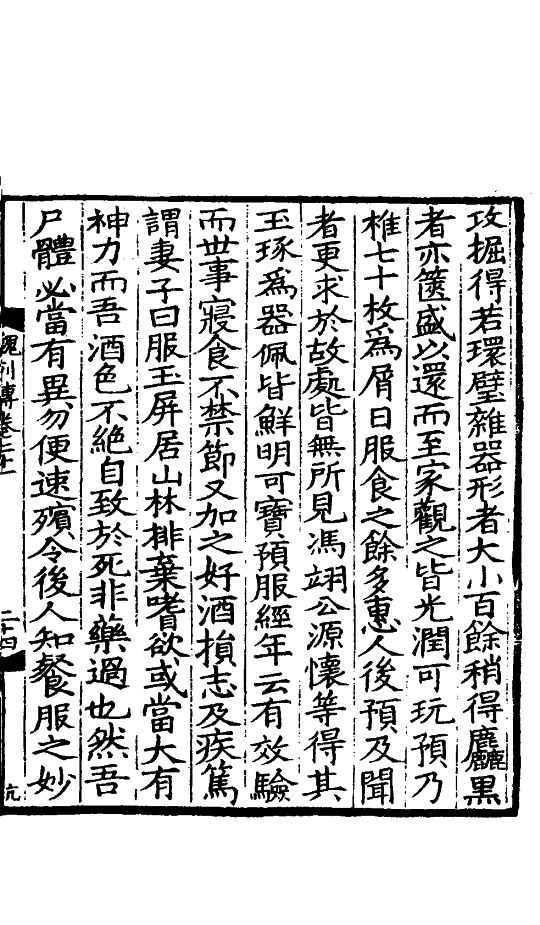 攻掘得若環璧雜器形者大小百餘稍得麤黑
者亦篋盛以還而至家觀之皆光潤可玩預乃
椎七十枚爲屑日服食之餘多惠人後預及聞
者更求於故處皆無所見馮翊公源懷等得其
玉琢爲器佩皆鮮明可寶預服經年云有效驗
而世事寢食不禁節又加之好酒損志及疾篤
謂妻子曰服玉屏居山林排棄嗜欲或當大有
神力而吾酒色不絶自致於死非藥過也然吾
尸體必當有異勿便速殯令後人知餐服之妙
魏列傳卷二十一
二十四
亢